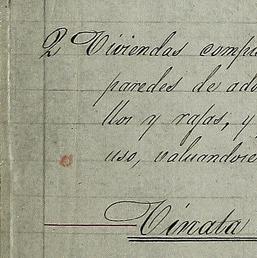 2 Viviendas compu
paredes de ado
llos y rafas, y
uso, valuandose
Tinata